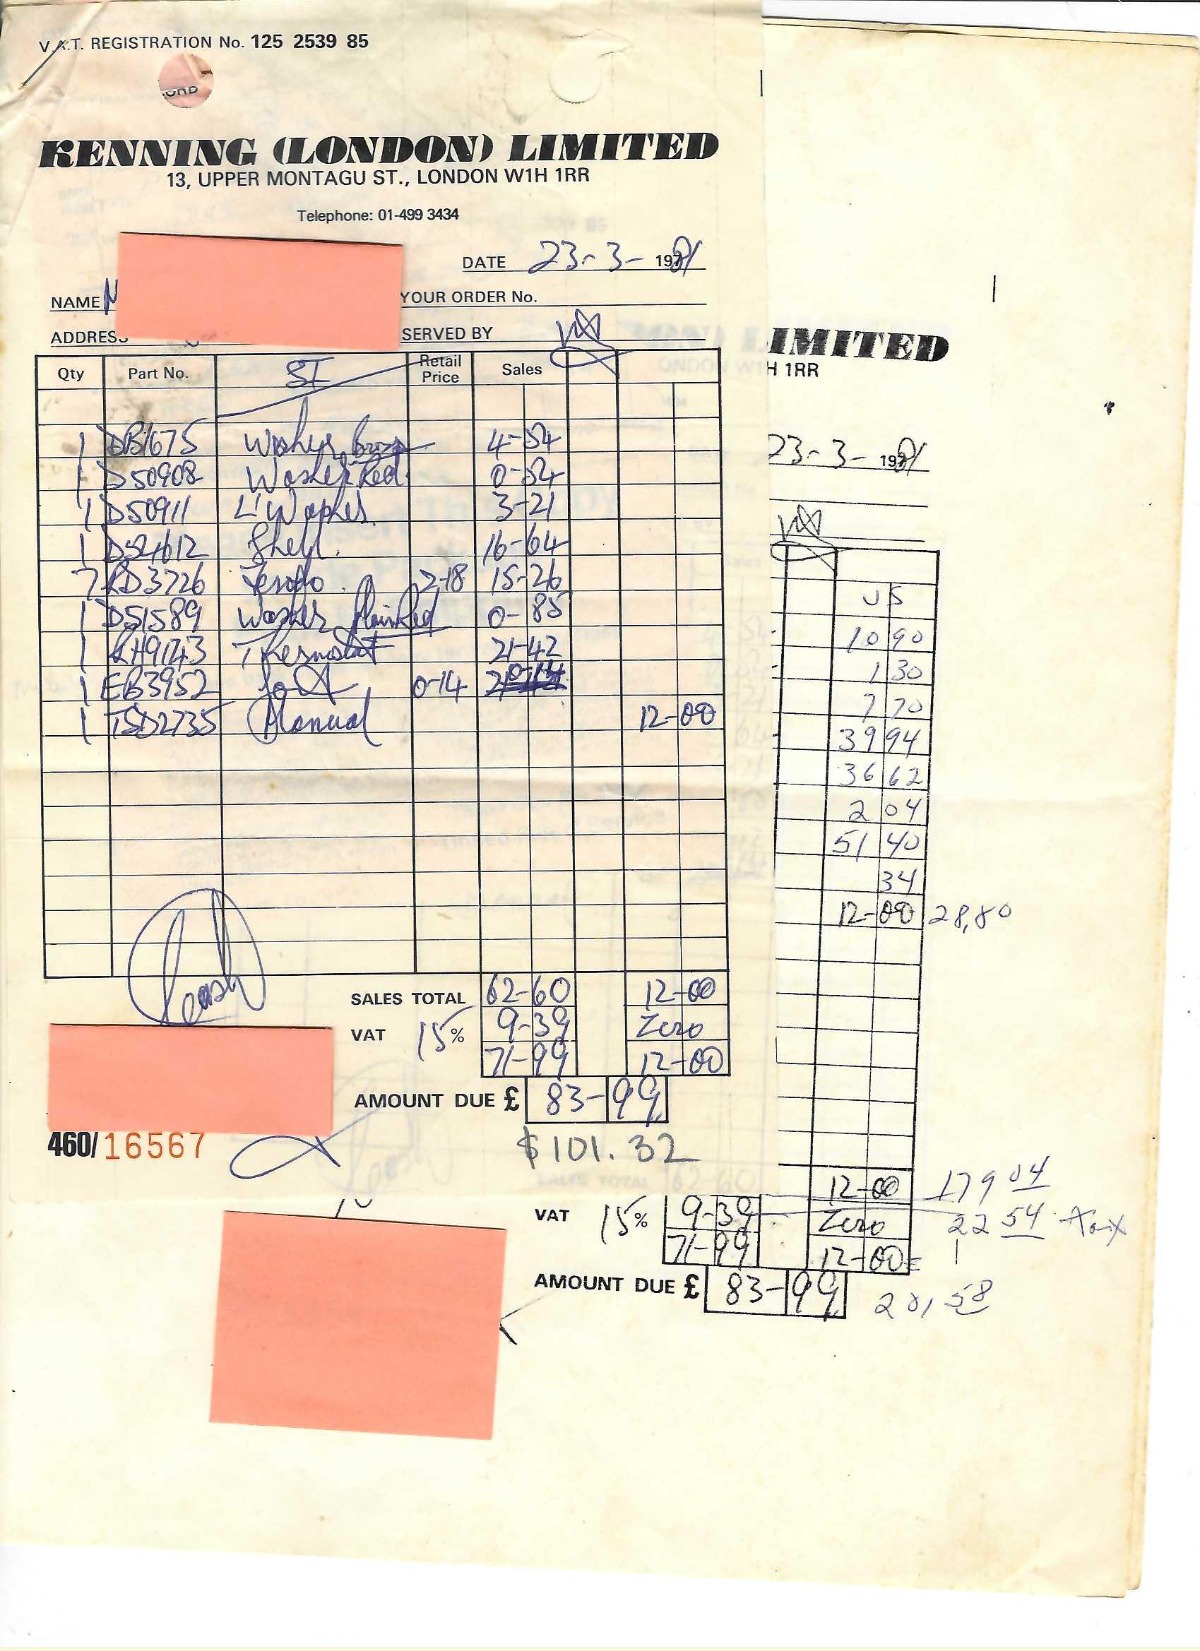 V.A.T. REGISTRATION No. 125 2539 85
KENNING (LONDON) LIMITED
13, UPPER MONTAGU ST., LONDON W1H 1RR
Telephone: 01-499 3434
DATE 23-3-1981
NAME YOUR ORDER No.
ADDRESS SERVED BY
Qty Part No. Retail Price Sales
1 DB1675 Washer 4-54
1 D50908 Washer Red 0-54
1 D50911 3-21
1 Shell 16-64
7 RD3726 2-18 15-26
1 D51589 Washer Plain Red 0-85
1 RH9143 Thermostat 21-42
1 EB3952 0-14 0-14
1 TSD2735 Manual 12-00
cash
SALES TOTAL 62-60 12-00
VAT 15% 9-39 Zero
71-99 12-00
AMOUNT DUE £ 83-99
460/16567
$101.32
LIMITED
H 1RR
23-3-1981
US
10 90
1 30
7 70
39 94
36 62
2 04
51 40
34
12-00 28,80
12-00 179 04
VAT 15% 9-39 Zero 22 54 Tax
71-99 12-00
AMOUNT DUE £ 83-99 201 58